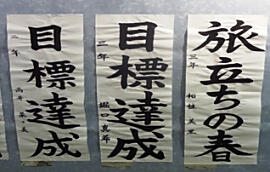 旅立ちの春
三年
目標達成
三年
堀口真希
目標達成
二年